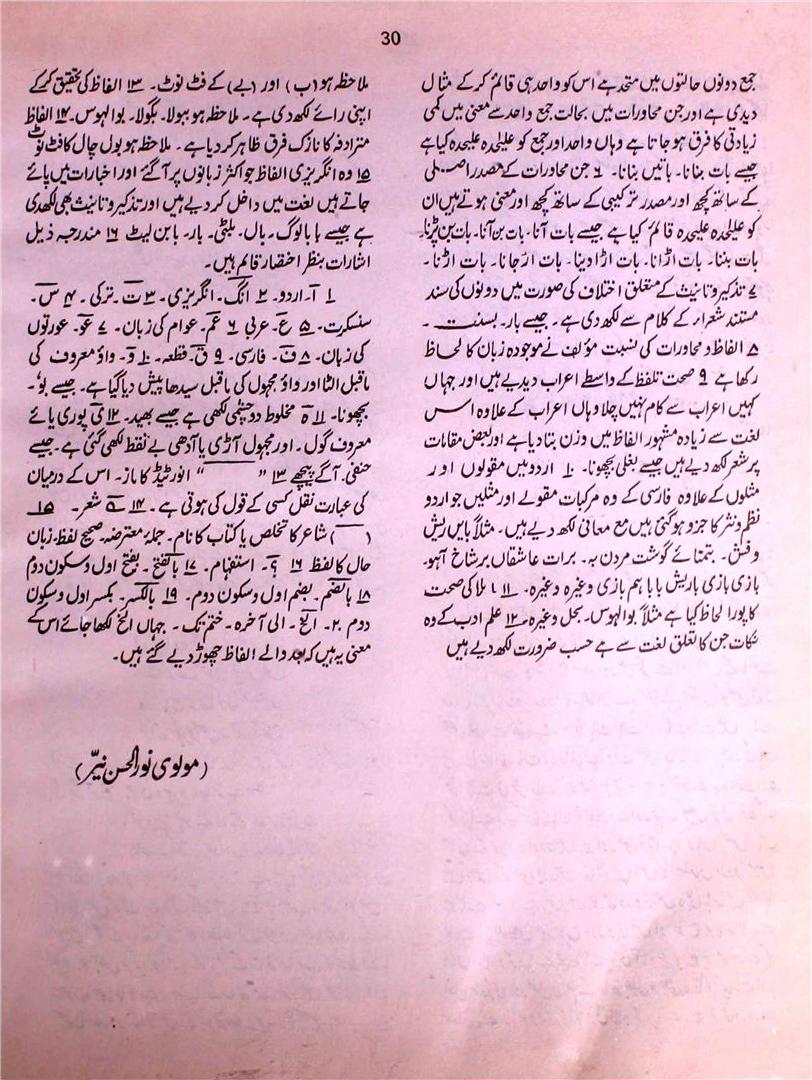 30
جمع دونوں حالتوں میں متحد ہے اس کو واحد ہی قائم کر کے مثال
دیدی ہے اور جن محاورات میں بحالت جمع واحد سے معنی میں کمی
زیادتی کا فرق ہو جاتا ہے وہاں واحد اور جمع کو علیٰحدہ علیٰحدہ کیا ہے
جیسے بات بنانا۔ باتیں بنانا۔ ۶ جن محاورات کے مصدر اصلی
کے ساتھ کچھ اور مصدر ترکیبی کے ساتھ کچھ اور معنی ہوتے ہیں ان
کو علیٰحدہ علیٰحدہ قائم کیا ہے جیسے بات آنا۔ بات بن آنا۔ بات بن پڑنا۔
بات بننا۔ بات اڑانا۔ بات اڑا دینا۔ بات اڑ جانا۔ بات اڑنا۔
۷ تذکیر و تانیث کے متعلق اختلاف کی صورت میں دونوں کی سند
مستند شعراء کے کلام سے لکھ دی ہے۔ جیسے ہار۔ بسنت۔
۸ الفاظ و محاورات کی نسبت مؤلف نے موجودہ زبان کا لحاظ
رکھا ہے ۹ صحت تلفظ کے واسطے اعراب دیدیے ہیں اور جہاں
کہیں اعراب سے کام نہیں چلا وہاں اعراب کے علاوہ اس
لغت سے زیادہ مشہور الفاظ میں وزن بتا دیا ہے اور بعض مقامات
پر شعر لکھ دیے ہیں جیسے بغلی بچھونا۔ ۱۰ اردو میں مقولوں اور
مثلوں کے علاوہ فارسی کے وہ مرکبات مقولے اور مثلیں جو اردو
نظم و نثر کا جزو ہو گئی ہیں مع معانی لکھ دیے ہیں۔ مثلاً بایں ریش
و فش۔ بتمنائے گوشت مردن بہ۔ برات عاشقاں بر شاخ آہو۔
بازی بازی باریش بابا ہم بازی وغیرہ وغیرہ۔ ۱۱ املا کی صحت
کا پورا لحاظ کیا ہے مثلاً بوالہوس۔ بحل وغیرہ۔ ۱۲ علم ادب کے وہ
نکات جن کا تعلق لغت سے ہے حسب ضرورت لکھ دیے ہیں
ملاحظہ ہو (ب) اور (بے) کے فٹ نوٹ۔ ۱۳ الفاظ کی تحقیق کر کے
اپنی رائے لکھ دی ہے۔ ملاحظہ ہو ببولا۔ بگولا۔ بوالہوس۔ ۱۴ الفاظ
مترادفہ کا نازک فرق ظاہر کر دیا ہے۔ ملاحظہ ہو بول چال کا فٹ نوٹ
۱۵ وہ انگریزی الفاظ جو اکثر زبانوں پر آ گئے اور اخبارات میں پائے
جاتے ہیں لغت میں داخل کر دیے ہیں اور تذکیر و تانیث بھی لکھدی
ہے جیسے بابا لوگ۔ بال۔ بلٹی۔ بار۔ بابن لیٹ ۱۶ مندرجہ ذیل
اشارات بنظر اختصار قائم ہیں۔
۱ آ۔ اردو۔ ۲ انگ۔ انگریزی۔ ۳ ت۔ ترکی۔ ۴ س۔
سنسکرت۔ ۵ ع۔ عربی ۶ عم۔ عوام کی زبان۔ ۷ عو۔ عورتوں
کی زبان۔ ۸ ف۔ فارسی۔ ۹ ق۔ قطعہ۔ ۱۰ و۔ واؤ معروف کی
ماقبل الٹا اور واؤ مجہول کی ماقبل سیدھا پیش دیا گیا ہے۔ جیسے بو۔
بچھونا۔ ۱۱ ہ مخلوط دو چشمی لکھی ہے جیسے بھید۔ ۱۲ ی پوری یائے
معروف گول۔ اور مجہول آڑی یا آدھی بے نقط لکھی گئی ہے۔ جیسے
حنفی۔ آگے پیچھے ۱۳ " " انورٹیڈ کاماز۔ اس کے درمیان
کی عبارت نقل کسی کے قول کی ہوتی ہے۔ ۱۴ ؎ شعر۔ ۱۵
( ) شاعر کا تخلص یا کتاب کا نام۔ جملۂ معترضہ۔ صحیح لفظ۔ زبان
حال کا لفظ ۱۶ ؟۔ استفہام۔ ۱۷ بالفتح۔ بفتح اول و سکون دوم
۱۸ بالضم۔ بضم اول و سکون دوم۔ ۱۹ بالکسر۔ بکسر اول و سکون
دوم ۲۰۔ الخ۔ الی آخرہ۔ ختم تک۔ جہاں الخ لکھا جائے اس کے
معنی یہ ہیں کہ بعد والے الفاظ چھوڑ دیے گئے ہیں۔
(مولوی نور الحسن نیّر)